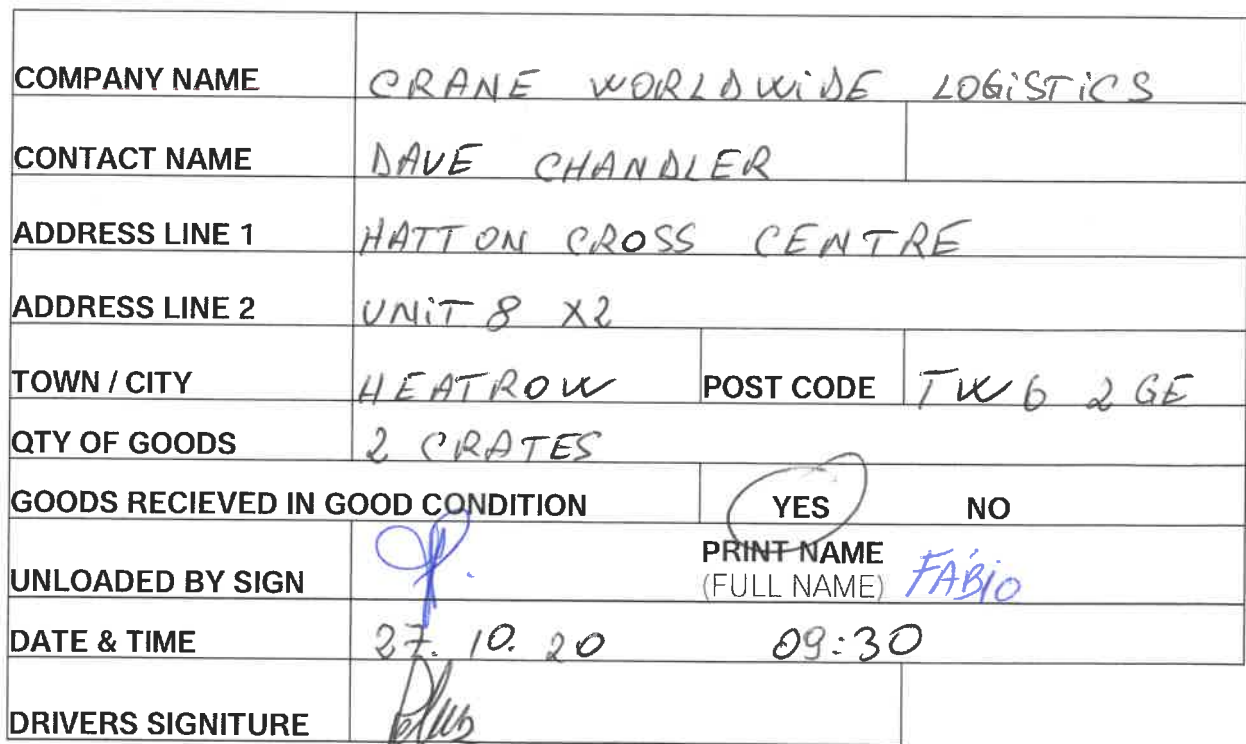 COMPANY NAME CRANE WORLDWIDE LOGISTICS
CONTACT NAME DAVE CHANDLER
ADDRESS LINE 1 HATTON CROSS CENTRE
ADDRESS LINE 2 UNIT 8 X2
TOWN / CITY HEATROW POST CODE TW6 2GE
QTY OF GOODS 2 CRATES
GOODS RECIEVED IN GOOD CONDITION YES NO
UNLOADED BY SIGN PRINT NAME (FULL NAME) FÁBIO
DATE & TIME 27.10.20 09:30
DRIVERS SIGNITURE